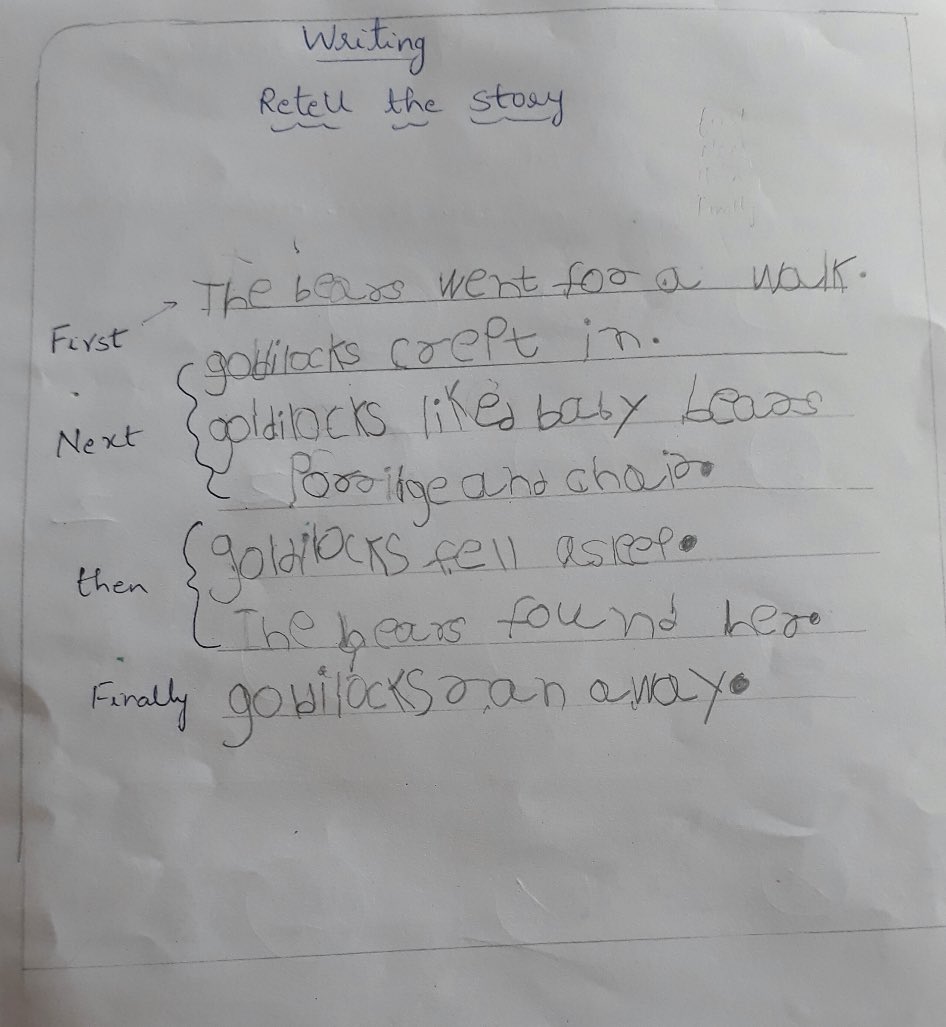 Writing
Retell the story
The bears went for a walk.
First
goldilocks crept in.
Next
goldilocks liked baby bears
Porridge and chair
goldilocks fell asleep.
then
The bears found her
Finally
goldilocks ran away.